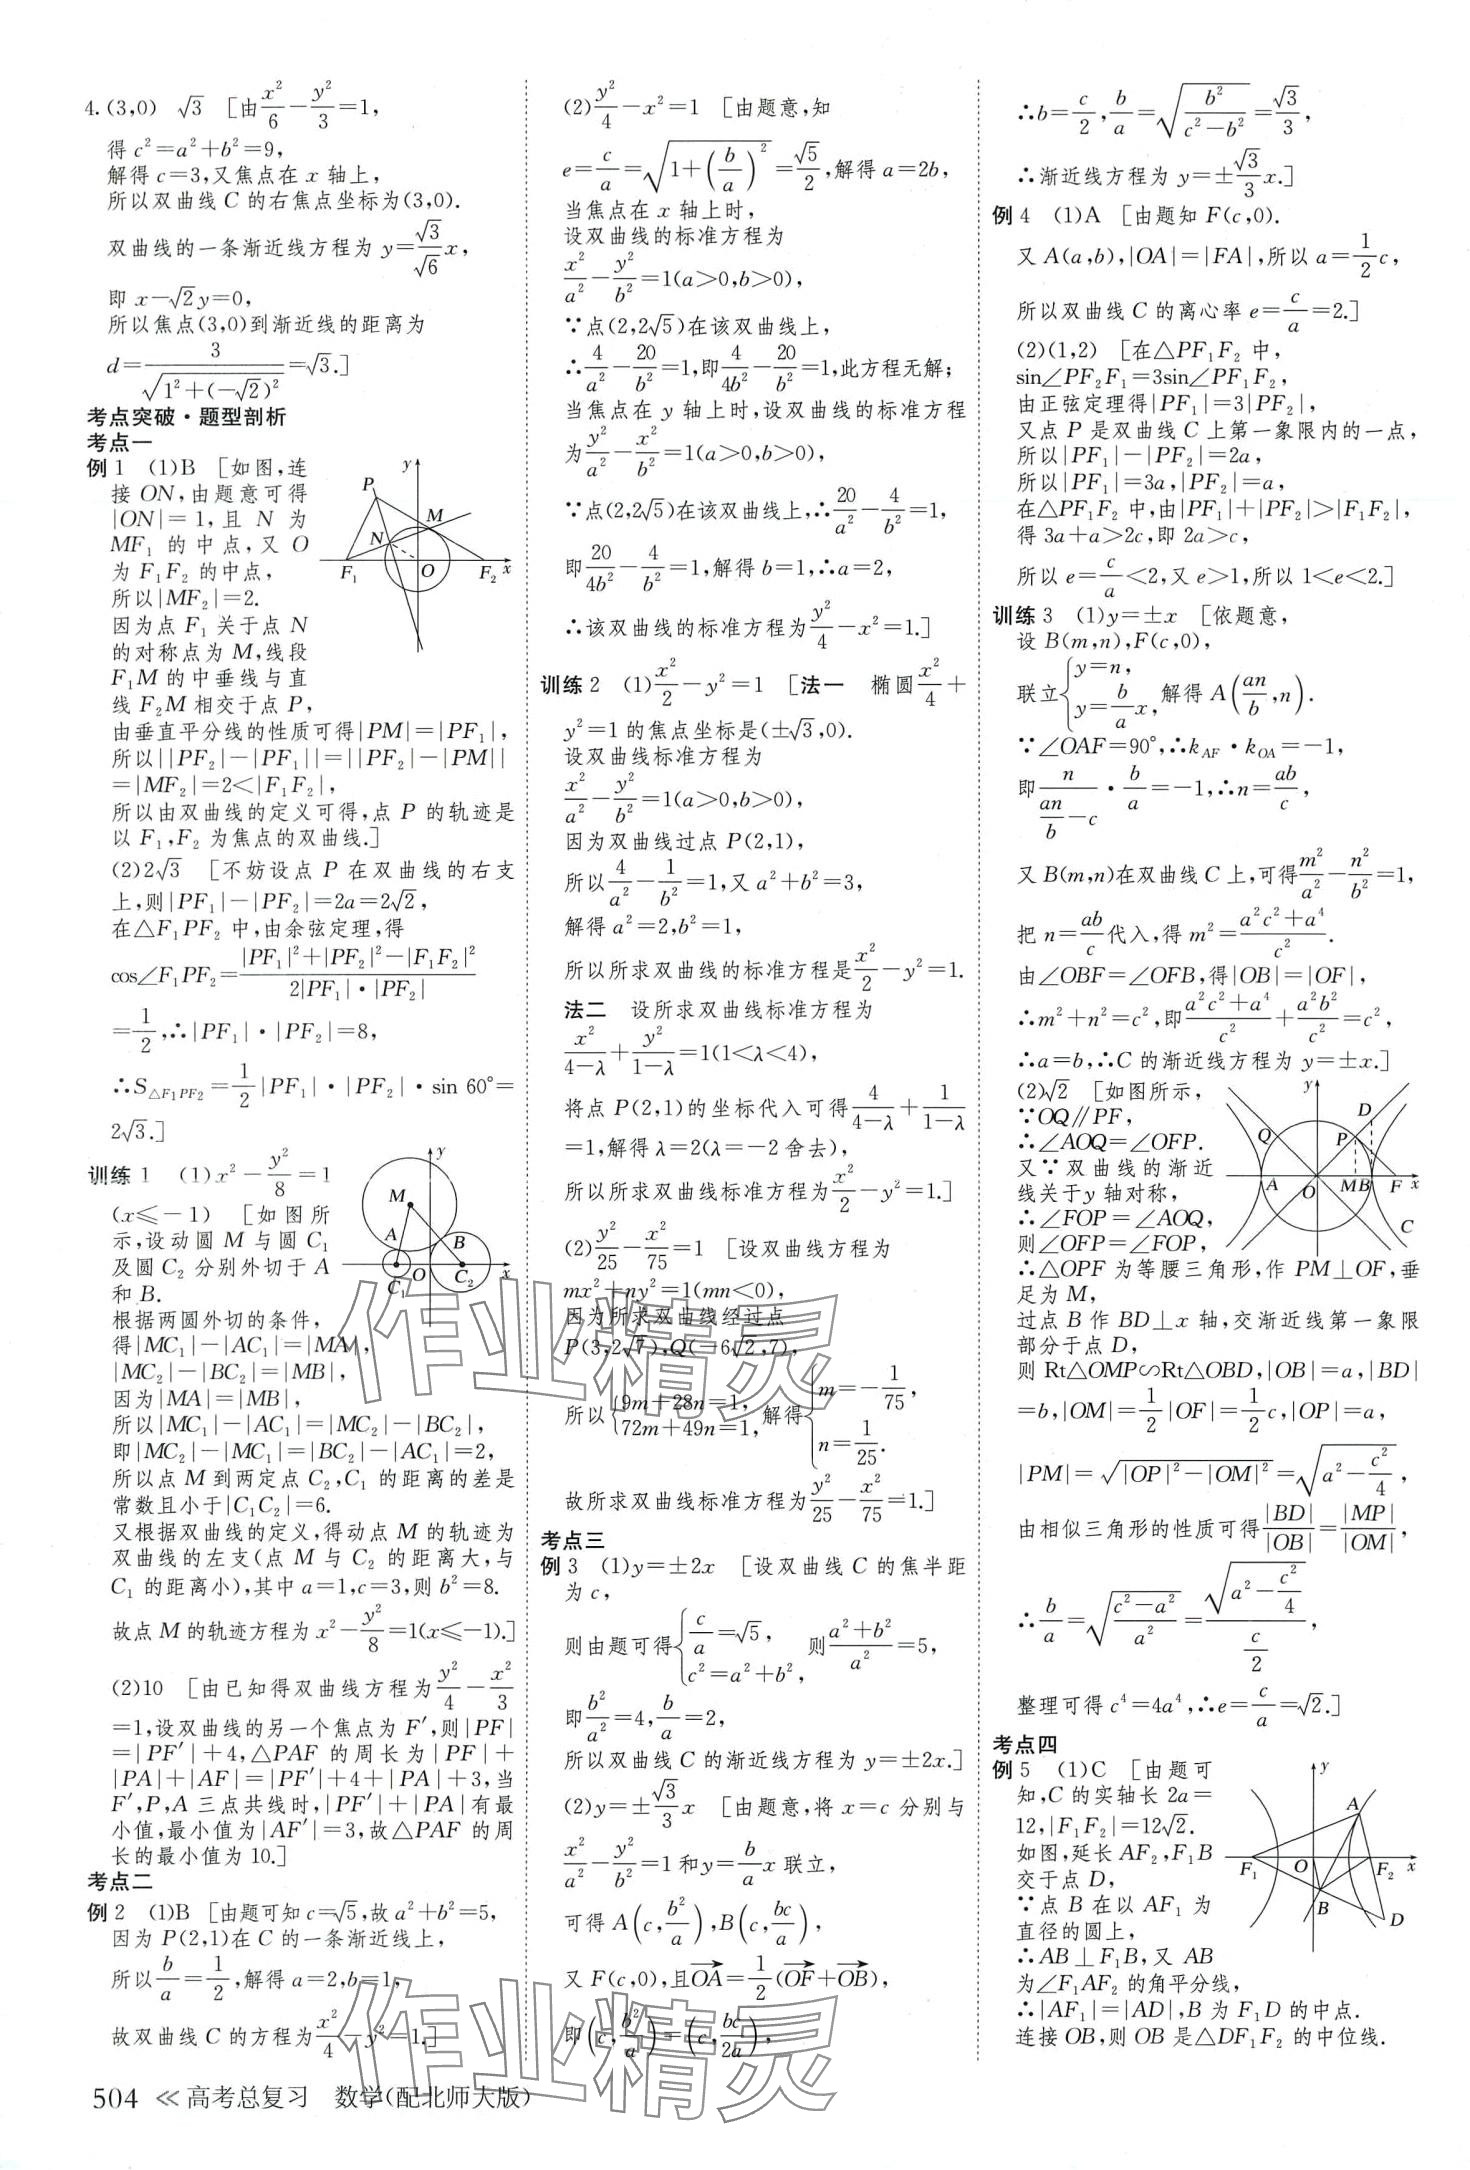 4.(3,0)　√3　[由x²/6－y²/3＝1,
得 c²＝a²＋b²＝9,
解得 c＝3,又焦点在 x 轴上,
所以双曲线 C 的右焦点坐标为(3,0).
双曲线的一条渐近线方程为 y＝√3/√6 x,
即 x－√2y＝0,
所以焦点(3,0)到渐近线的距离为
d＝3/√(1²＋(－√2)²)＝√3.]
考点突破·题型剖析
考点一
例 1　(1)B　[如图,连
接 ON,由题意可得
|ON|＝1,且 N 为
MF₁ 的中点,又 O
为 F₁F₂ 的中点,
所以|MF₂|＝2.
因为点 F₁ 关于点 N
的对称点为 M,线段
F₁M 的中垂线与直
线 F₂M 相交于点 P,
由垂直平分线的性质可得|PM|＝|PF₁|,
所以||PF₂|－|PF₁||＝||PF₂|－|PM||
＝|MF₂|＝2＜|F₁F₂|,
所以由双曲线的定义可得,点 P 的轨迹是
以 F₁,F₂ 为焦点的双曲线.]
y
P
M
N
F₁
O
F₂
x
(2)2√3　[不妨设点 P 在双曲线的右支
上,则|PF₁|－|PF₂|＝2a＝2√2,
在△F₁PF₂ 中,由余弦定理,得
cos∠F₁PF₂＝(|PF₁|²＋|PF₂|²－|F₁F₂|²)/(2|PF₁|·|PF₂|)
＝1/2,∴|PF₁|·|PF₂|＝8,
∴S△F₁PF₂＝1/2|PF₁|·|PF₂|·sin 60°＝
2√3.]
训练 1　(1)x²－y²/8＝1
(x≤－1)　[如图所
示,设动圆 M 与圆 C₁
及圆 C₂ 分别外切于 A
和 B.
根据两圆外切的条件,
得|MC₁|－|AC₁|＝|MA|,
|MC₂|－|BC₂|＝|MB|,
因为|MA|＝|MB|,
所以|MC₁|－|AC₁|＝|MC₂|－|BC₂|,
即|MC₂|－|MC₁|＝|BC₂|－|AC₁|＝2,
所以点 M 到两定点 C₂,C₁ 的距离的差是
常数且小于|C₁C₂|＝6.
又根据双曲线的定义,得动点 M 的轨迹为
双曲线的左支(点 M 与 C₂ 的距离大,与
C₁ 的距离小),其中 a＝1,c＝3,则 b²＝8.
故点 M 的轨迹方程为 x²－y²/8＝1(x≤－1).]
y
M
A
B
C₁
O
C₂
x
(2)10　[由已知得双曲线方程为y²/4－x²/3
＝1,设双曲线的另一个焦点为 F′,则|PF|
＝|PF′|＋4,△PAF 的周长为|PF|＋
|PA|＋|AF|＝|PF′|＋4＋|PA|＋3,当
F′,P,A 三点共线时,|PF′|＋|PA|有最
小值,最小值为|AF′|＝3,故△PAF 的周
长的最小值为 10.]
考点二
例 2　(1)B　[由题可知 c＝√5,故 a²＋b²＝5,
因为 P(2,1)在 C 的一条渐近线上,
所以b/a＝1/2,解得 a＝2,b＝1,
故双曲线 C 的方程为x²/4－y²＝1.]
(2)y²/4－x²＝1　[由题意,知
e＝c/a＝√(1＋(b/a)²)＝√5/2,解得 a＝2b,
当焦点在 x 轴上时,
设双曲线的标准方程为
x²/a²－y²/b²＝1(a＞0,b＞0),
∵点(2,2√5)在该双曲线上,
∴4/a²－20/b²＝1,即4/4b²－20/b²＝1,此方程无解;
当焦点在 y 轴上时,设双曲线的标准方程
为y²/a²－x²/b²＝1(a＞0,b＞0),
∵点(2,2√5)在该双曲线上,∴20/a²－4/b²＝1,
即20/4b²－4/b²＝1,解得 b＝1,∴a＝2,
∴该双曲线的标准方程为y²/4－x²＝1.]
训练 2　(1)x²/2－y²＝1　[法一　椭圆x²/4＋
y²＝1 的焦点坐标是(±√3,0).
设双曲线标准方程为
x²/a²－y²/b²＝1(a＞0,b＞0),
因为双曲线过点 P(2,1),
所以4/a²－1/b²＝1,又 a²＋b²＝3,
解得 a²＝2,b²＝1,
所以所求双曲线的标准方程是x²/2－y²＝1.
法二　设所求双曲线标准方程为
x²/(4－λ)＋y²/(1－λ)＝1(1＜λ＜4),
将点 P(2,1)的坐标代入可得4/(4－λ)＋1/(1－λ)
＝1,解得 λ＝2(λ＝－2 舍去),
所以所求双曲线标准方程为x²/2－y²＝1.]
(2)y²/25－x²/75＝1　[设双曲线方程为
mx²＋ny²＝1(mn＜0),
因为所求双曲线经过点
P(3,2√7),Q(－6√2,7),
所以{9m＋28n＝1, 72m＋49n＝1,解得{m＝－1/75, n＝1/25.
故所求双曲线标准方程为y²/25－x²/75＝1.]
考点三
例 3　(1)y＝±2x　[设双曲线 C 的焦半距
为 c,
则由题可得{c/a＝√5, c²＝a²＋b²,　则(a²＋b²)/a²＝5,
即b²/a²＝4,b/a＝2,
所以双曲线 C 的渐近线方程为 y＝±2x.]
(2)y＝±√3/3 x　[由题意,将 x＝c 分别与
x²/a²－y²/b²＝1 和y＝b/a x 联立,
可得 A(c,b²/a),B(c,bc/a),
又 F(c,0),且OA→＝1/2(OF→＋OB→),
即(c,b²/a)＝(c,bc/2a),
∴b＝c/2,b/a＝√(b²/(c²－b²))＝√3/3,
∴渐近线方程为 y＝±√3/3 x.]
例 4　(1)A　[由题知 F(c,0).
又 A(a,b),|OA|＝|FA|,所以 a＝1/2c,
所以双曲线 C 的离心率 e＝c/a＝2.]
(2)(1,2)　[在△PF₁F₂ 中,
sin∠PF₂F₁＝3sin∠PF₁F₂,
由正弦定理得|PF₁|＝3|PF₂|,
又点 P 是双曲线 C 上第一象限内的一点,
所以|PF₁|－|PF₂|＝2a,
所以|PF₁|＝3a,|PF₂|＝a,
在△PF₁F₂ 中,由|PF₁|＋|PF₂|＞|F₁F₂|,
得 3a＋a＞2c,即 2a＞c,
所以 e＝c/a＜2,又 e＞1,所以 1＜e＜2.]
训练 3　(1)y＝±x　[依题意,
设 B(m,n),F(c,0),
联立{y＝n, y＝b/a x,解得 A(an/b,n).
∵∠OAF＝90°,∴k_AF·k_OA＝－1,
即n/(an/b－c)·b/a＝－1,∴n＝ab/c,
又 B(m,n)在双曲线 C 上,可得m²/a²－n²/b²＝1,
把 n＝ab/c代入,得 m²＝(a²c²＋a⁴)/c².
由∠OBF＝∠OFB,得|OB|＝|OF|,
∴m²＋n²＝c²,即(a²c²＋a⁴)/c²＋a²b²/c²＝c²,
∴a＝b,∴C 的渐近线方程为 y＝±x.]
(2)√2　[如图所示,
∵OQ∥PF,
∴∠AOQ＝∠OFP.
又∵双曲线的渐近
线关于 y 轴对称,
∴∠FOP＝∠AOQ,
则∠OFP＝∠FOP,
∴△OPF 为等腰三角形,作 PM⊥OF,垂
足为 M,
过点 B 作 BD⊥x 轴,交渐近线第一象限
部分于点 D,
则 Rt△OMP∽Rt△OBD,|OB|＝a,|BD|
＝b,|OM|＝1/2|OF|＝1/2c,|OP|＝a,
|PM|＝√(|OP|²－|OM|²)＝√(a²－c²/4),
由相似三角形的性质可得|BD|/|OB|＝|MP|/|OM|,
∴b/a＝√((c²－a²)/a²)＝√(a²－c²/4)/(c/2),
整理可得 c⁴＝4a⁴,∴e＝c/a＝√2.]
y
D
Q
P
A
O
M
B
F
x
C
考点四
例 5　(1)C　[由题可
知,C 的实轴长 2a＝
12,|F₁F₂|＝12√2.
如图,延长 AF₂,F₁B
交于点 D,
∵点 B 在以 AF₁ 为
直径的圆上,
∴AB⊥F₁B,又 AB
为∠F₁AF₂ 的角平分线,
∴|AF₁|＝|AD|,B 为 F₁D 的中点.
连接 OB,则 OB 是△DF₁F₂ 的中位线.
y
A
F₁
O
F₂
x
B
D
504 ≪ 高考总复习　数学(配北师大版)
作业精灵
作业精灵